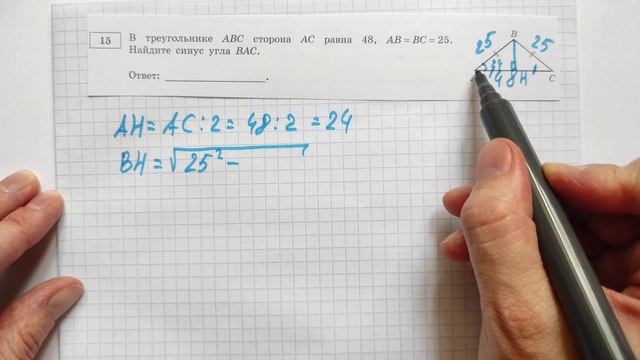 15 В треугольнике ABC сторона AC равна 48, AB = BC = 25.
Найдите синус угла BAC.
Ответ: ____________________.
B
25 25
48 H
C
AH = AC : 2 = 48 : 2 = 24
BH = √25² –